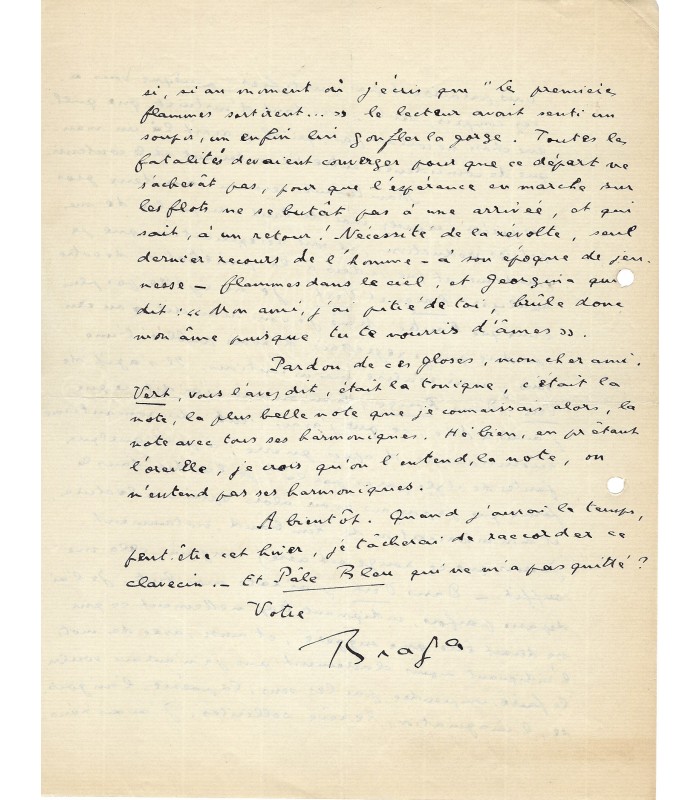 si, si au moment où j'écris que "les premières
flammes sortirent... » le lecteur avait senti un
soupir, un enfin lui gonfler la gorge. Toutes les
fatalités devaient converger pour que ce départ ne
s'achevât pas, pour que l'espérance en marche sur
les flots ne se butât pas à une arrivée, et qui
sait, à un retour! Nécessité de la révolte, seul
dernier recours de l'homme - à son époque de jeu-
nesse - flammes dans le ciel, et Georgina qui
dit: « Mon ami, j'ai pitié de toi, brûle donc
mon âme puisque tu te nourris d'âmes ».
Pardon de ces gloses, mon cher ami.
Vert, vous l'avez dit, était la tonique, c'était la
note, la plus belle note que je connaissais alors, la
note avec tous ses harmoniques. Hé bien, en prêtant
l'oreille, je crois qu'on l'entend, la note, on
n'entend pas ses harmoniques.
A bientôt. Quand j'aurai le temps,
peut-être cet hiver, je tâcherai de raccorder ce
clavecin. - Et Pâle Bleu qui ne m'a pas quitté?
Votre
Braga